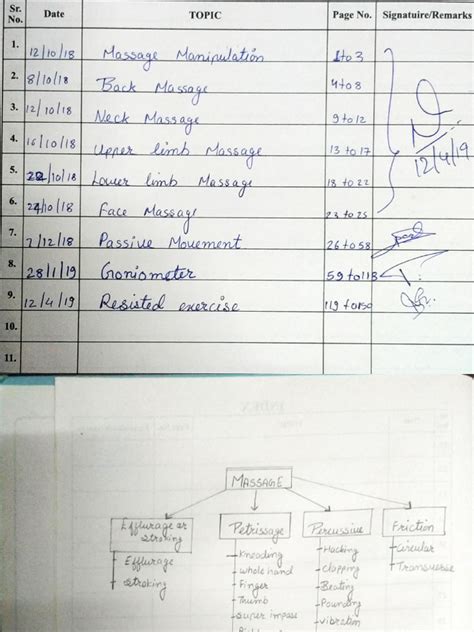 Sr. No. Date TOPIC Page No. Signatuire/Remarks
1. 12/10/18 Massage Manipulation 1 to 3
2. 8/10/18 Back Massage 4 to 8
3. 12/10/18 Neck Massage 9 to 12
4. 16/10/18 Upper limb Massage 13 to 17
5. 22/10/18 Lower limb Massage 18 to 22
6. 24/10/18 Face Massage 23 to 25
12/4/19
7. 7/12/18 Passive Movement 26 to 58
8. 28/1/19 Goniometer 59 to 118
9. 12/4/19 Resisted exercise 119 to 150
10.
11.
MASSAGE
Efflurage or Stroking
Petrissage
Percussive
Friction
- Efflurage
- Stroking
- Kneading
- whole hand
- Finger
- Thumb
- Super impose
- Hacking
- clapping
- Beating
- Pounding
- vibration
- Circular
- Transverse